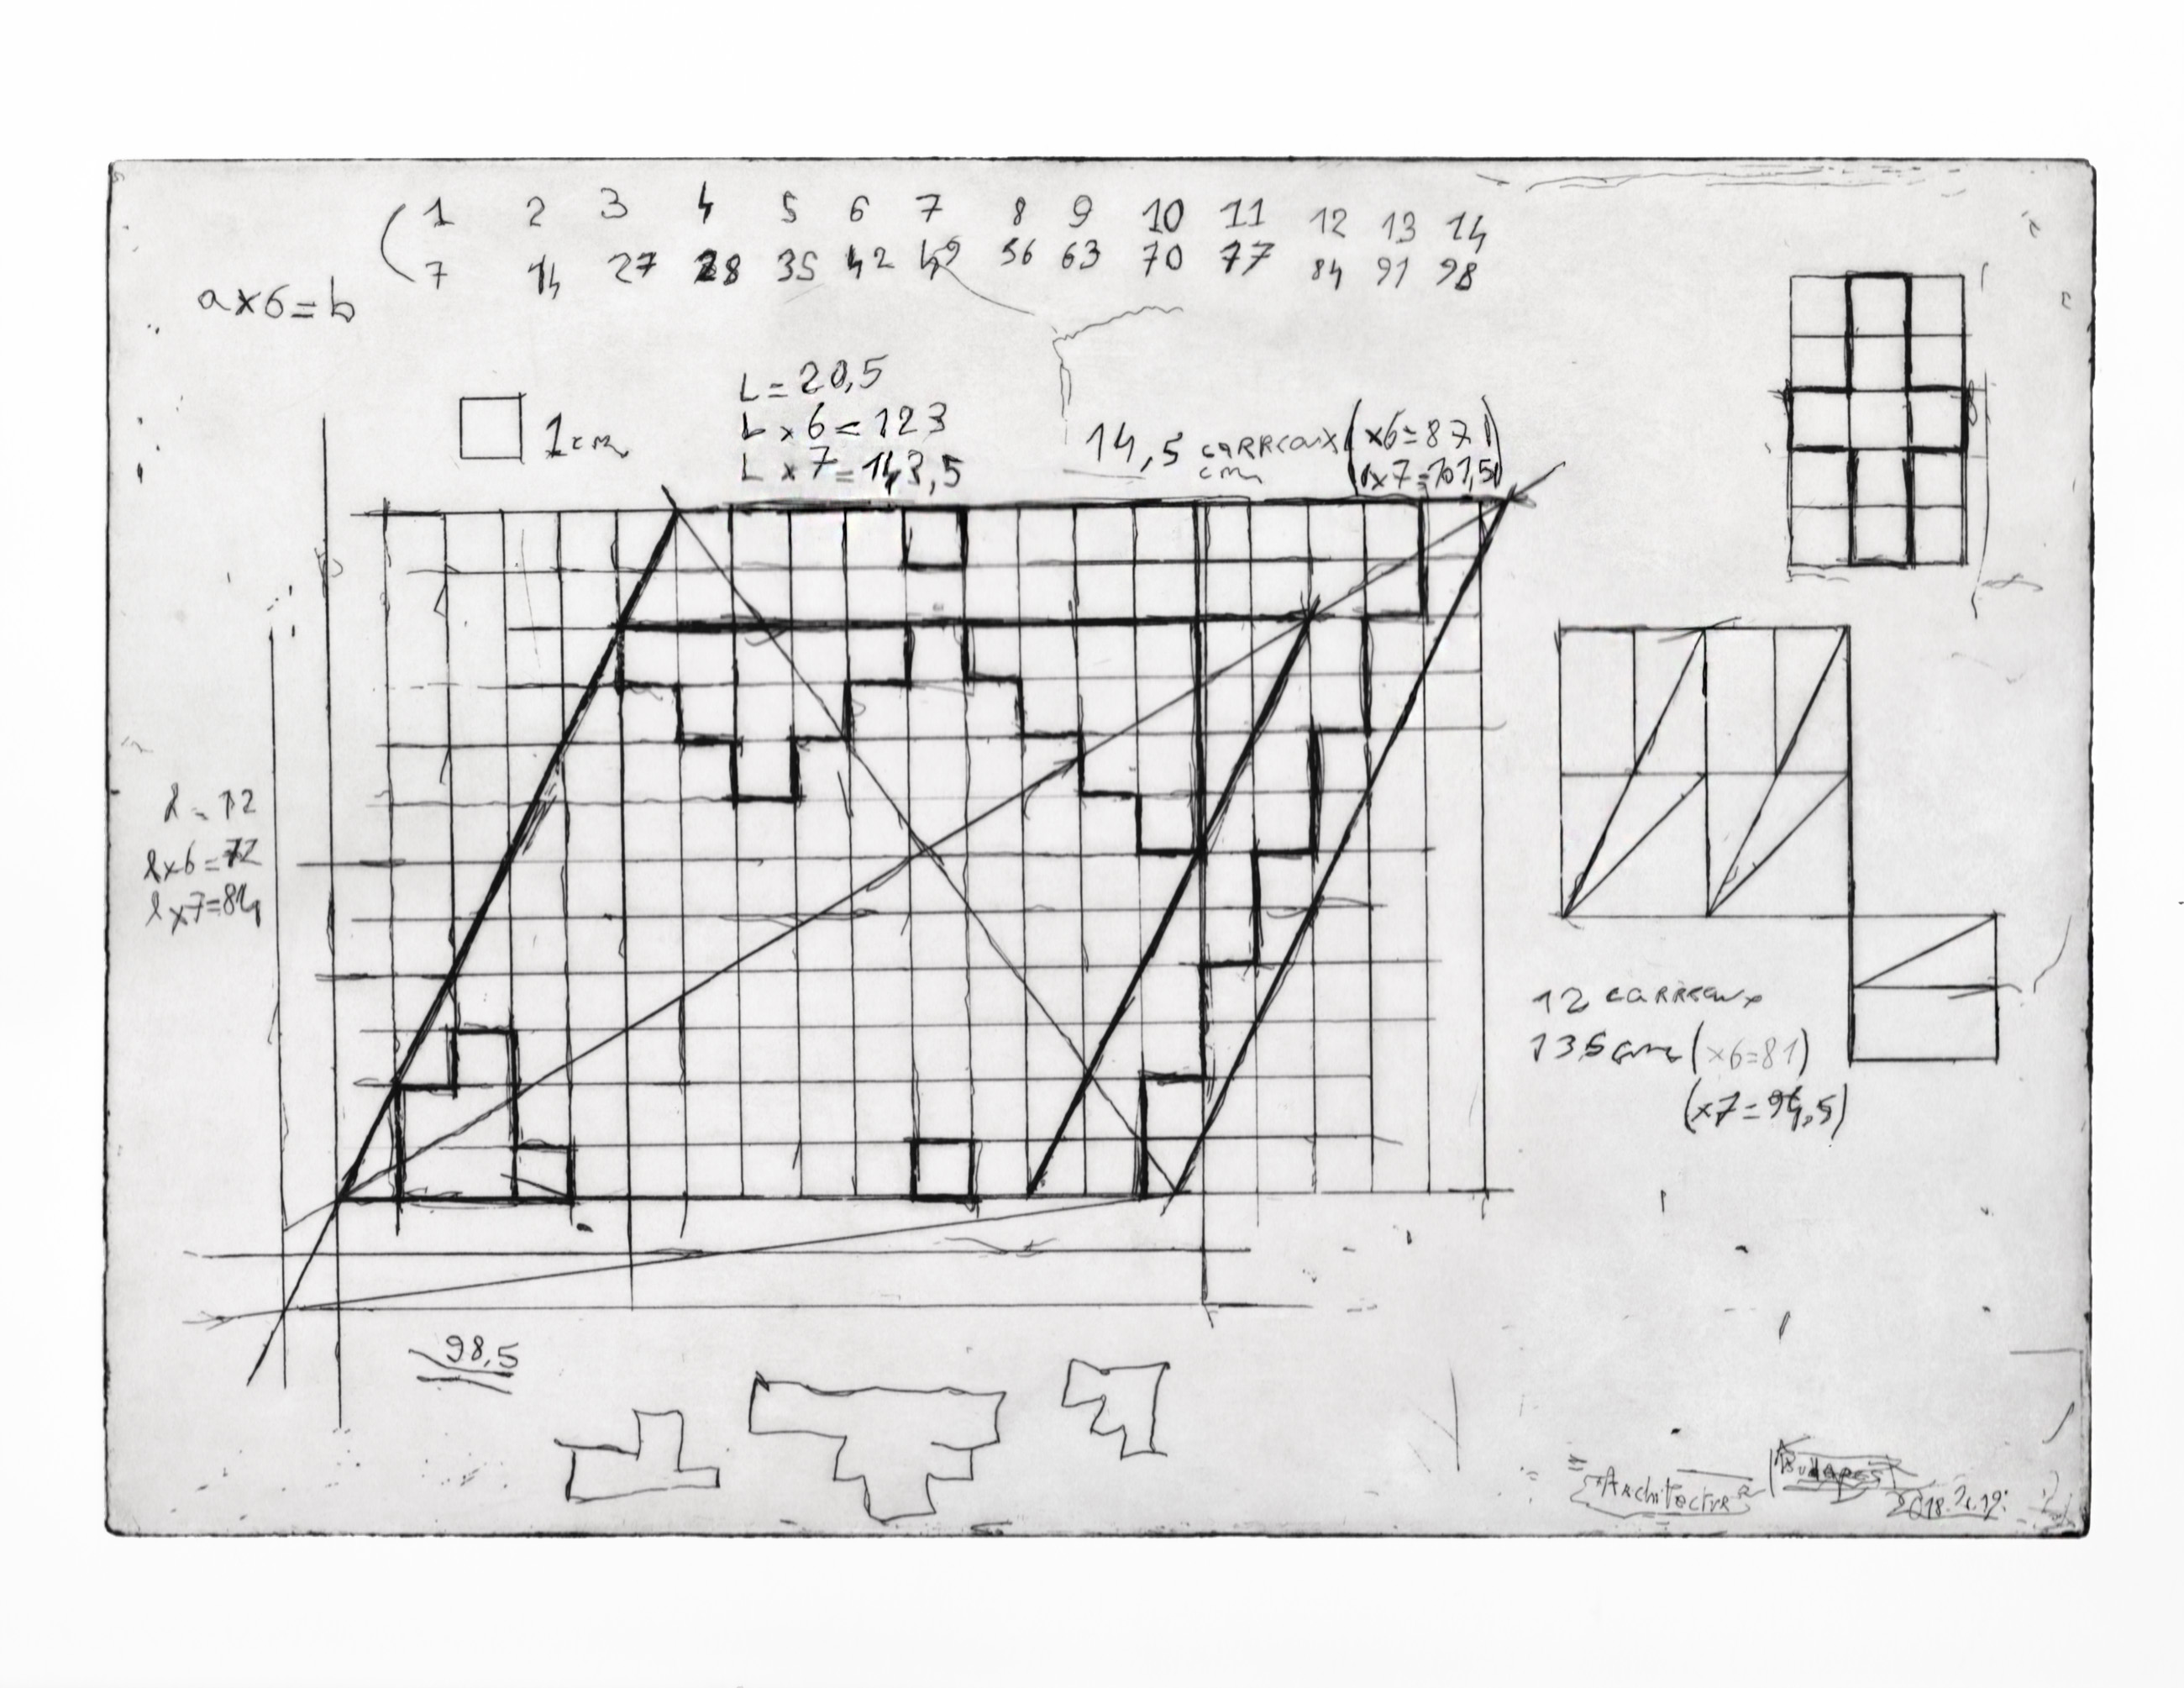 ( 1 2 3 4 5 6 7 8 9 10 11 12 13 14
7 14 27 28 35 42 49 56 63 70 77 84 91 98
a×6=b
1cm
L=20,5
L×6=123
L×7=143,5
14,5 carreaux (×6=87)
cm (×7=101,5)
l=12
l×6=72
l×7=84
12 carreaux
13,5 cm (×6=81)
(×7=94,5)
98,5
Architectura Budapest